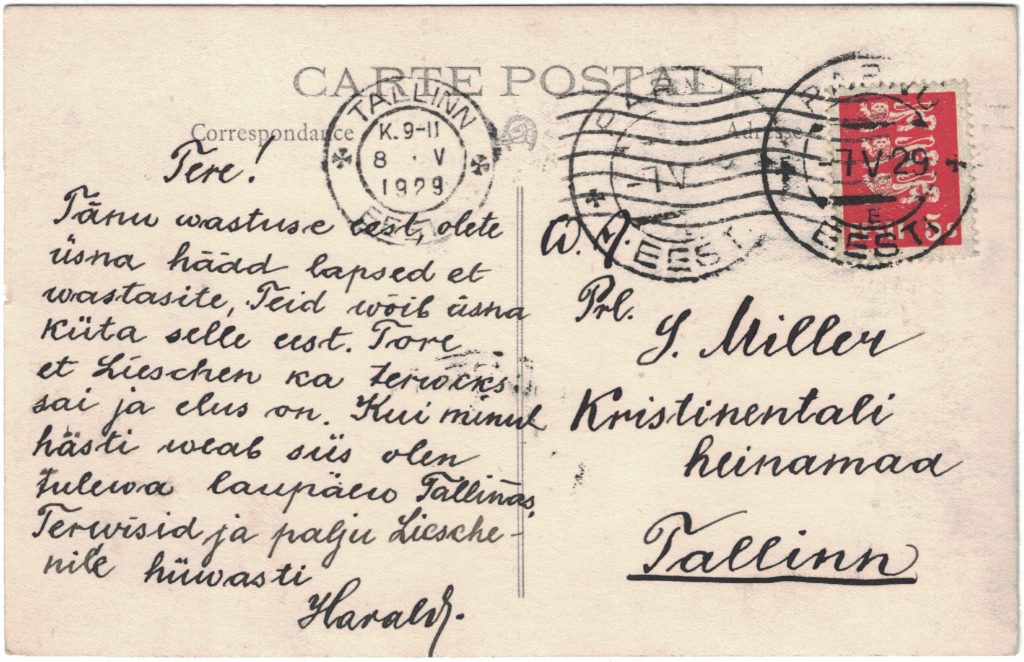 CARTE POSTALE
Correspondance
Adresse
TALLINN
K. 9-11
8 . V
1929
EESTI
-7 V
EESTI
-7 V 29
EESTI
5 s
Tere!
Tänu wastuse eest, olete
üsna hääd lapsed et
wastasite, Teid wõib üsna
küta selle eest. Tore
et Lieschen ka terweks
sai ja elus on. Kui minul
hästi weab siis olen
tulewa laupäew Tallinas,
Terwisid ja palju Liesche-
nile hüwasti
Harald.
Prl.
S. Miller
Kristinentali
heinamaa
Tallinn